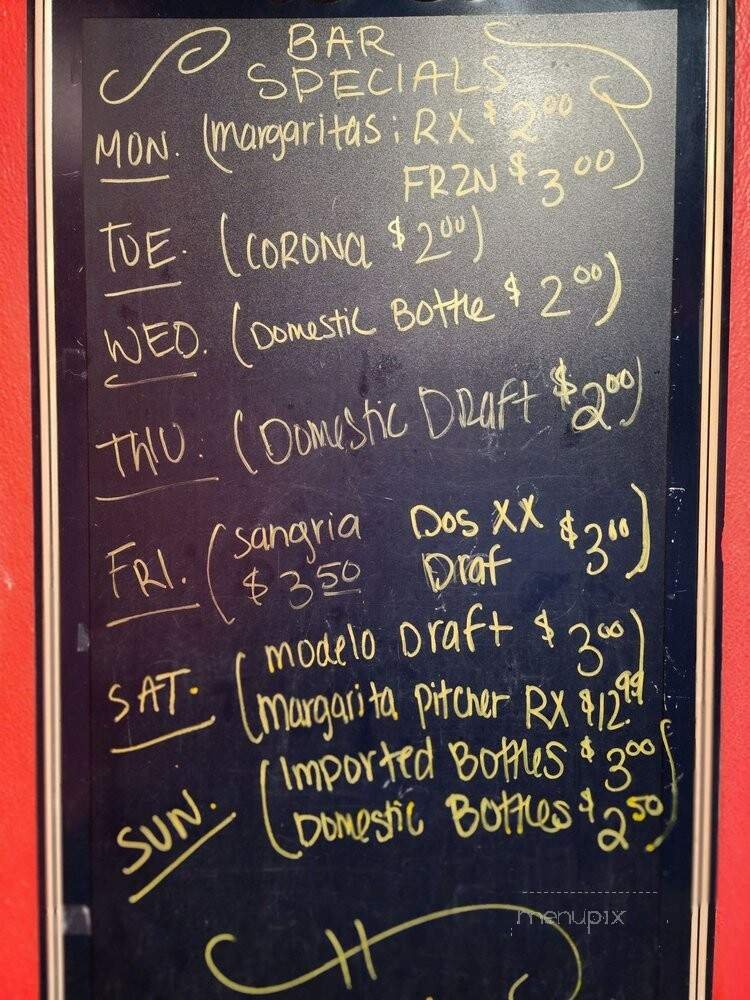 BAR
SPECIALS
MON. (margaritas: RX $2.00
FRZN $3.00)
TUE. (CORONA $2.00)
WED. (Domestic Bottle $2.00)
THU. (Domestic Draft $2.00)
FRI. (sangria Dos XX $3.00)
$3.50 Draf
SAT. (modelo Draft $3.00)
margarita pitcher RX $12.99
SUN. (Imported Bottles $3.00)
Domestic Bottles $2.50
menupix